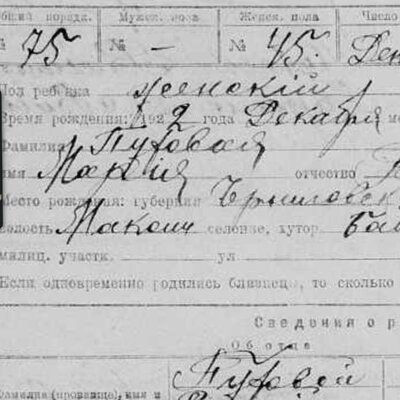 общий порядк. Мужск. пола Женск. пола Число
№ 75 № — № 45. Дек
Пол ребенка женский
Время рождения: 1922 года Декабря
Фамилия Путовая
имя Мария отчество
Место рождения: губерния Черниговск
волость Макош селение, хутор Ба
милиц. участк. ул
Если одновременно родились близнецы, то сколько
Сведения о р
Об отце
Путовой
Фамилия (прозвище), имя и